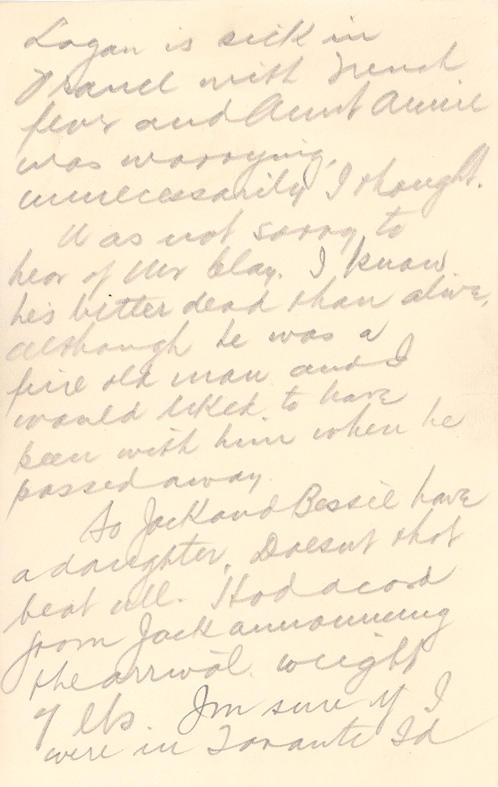 Logan is sick in
France with Trench
fever and Aunt Annie
was worrying,
unnecessarily I thought.
Was not sorry to
hear of Mr Clay. I know
he's better dead than alive,
although he was a
fine old man and I
would liked to have
been with him when he
passed away.
So Jack and Bessie have
a daughter. Doesnt that
beat all. Had a card
from Jack announcing
the arrival. weight
7 lbs. Im sure if I
were in Toronto Id